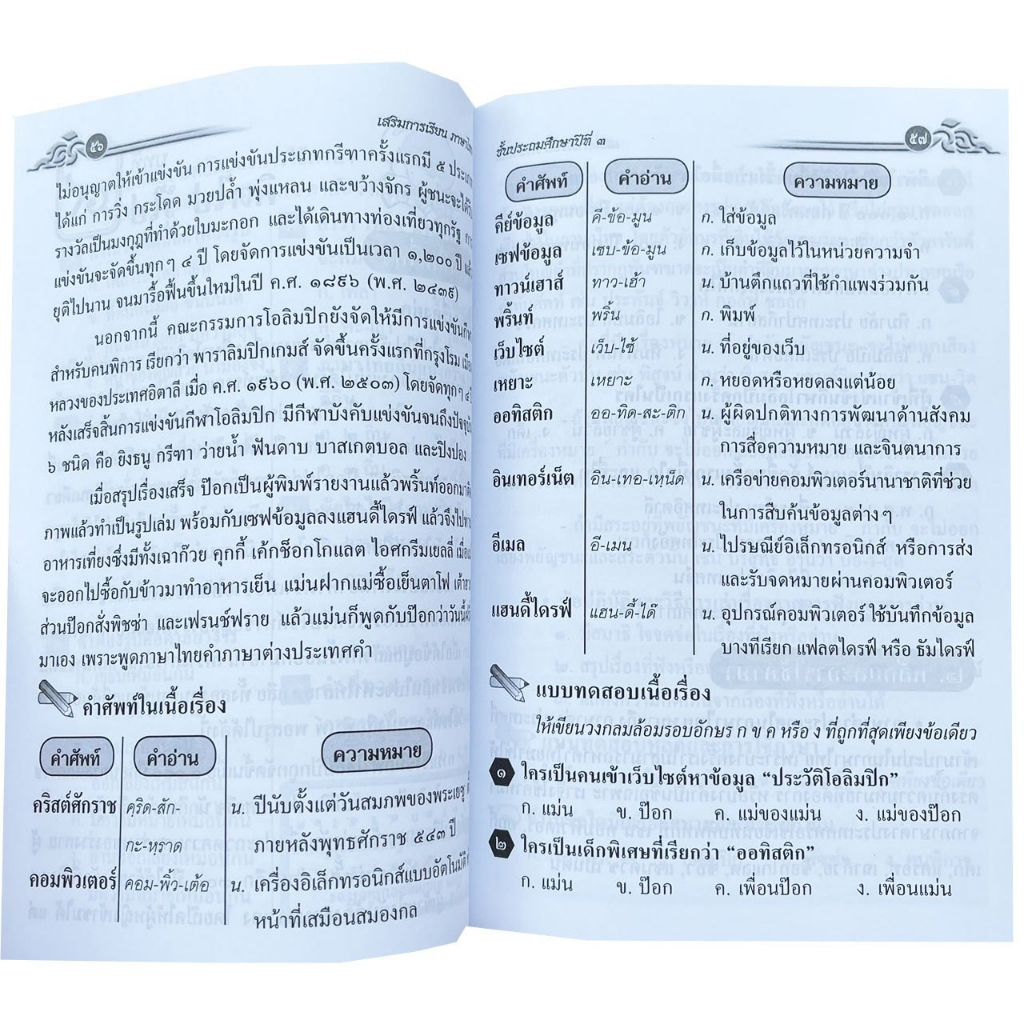 ๕๖
เสริมการเรียน ภาษา
ไม่อนุญาตให้เข้าแข่งขัน การแข่งขันประเภทกรีฑาครั้งแรกมี ๕
ได้แก่ การวิ่ง กระโดด มวยปล้ำ พุ่งแหลน และขว้างจักร ผู้ชนะจะได้
รางวัลเป็นมงกุฎที่ทำด้วยใบมะกอก และได้เดินทางท่องเที่ยวทุกรัฐ
แข่งขันจะจัดขึ้นทุกๆ ๔ ปี โดยจัดการแข่งขันเป็นเวลา ๑,๒๐๐ ปี
ยุติไปนาน จนมารื้อฟื้นขึ้นใหม่ในปี ค.ศ. ๑๘๙๖ (พ.ศ. ๒๔๓๙)
นอกจากนี้ คณะกรรมการโอลิมปิกยังจัดให้มีการแข่งขัน
สำหรับคนพิการ เรียกว่า พาราลิมปิกเกมส์ จัดขึ้นครั้งแรกที่กรุงโรม
หลวงของประเทศอิตาลี เมื่อ ค.ศ. ๑๙๖๐ (พ.ศ. ๒๕๐๓) โดยจัดทุกๆ ๔
หลังเสร็จสิ้นการแข่งขันกีฬาโอลิมปิก มีกีฬาบังคับแข่งขันจนถึง
๖ ชนิด คือ ยิงธนู กรีฑา ว่ายน้ำ ฟันดาบ บาสเกตบอล และปิงปอง
เมื่อสรุปเรื่องเสร็จ ป๊อกเป็นผู้พิมพ์รายงานแล้วพริ้นท์ออกมา
ภาพแล้วทำเป็นรูปเล่ม พร้อมกับเซฟข้อมูลลงแฮนดี้ไดรฟ์ แล้วจึงไป
อาหารเที่ยงซึ่งมีทั้งเฉาก๊วย คุกกี้ เค้กช็อกโกแลต ไอศกรีมเยลลี่
จะออกไปซื้อกับข้าวมาทำอาหารเย็น แม่นฝากแม่ซื้อเย็นตาโฟ
ส่วนป๊อกสั่งพิซซ่า และเฟรนช์ฟราย แล้วแม่นก็พูดกับป๊อกว่าวันนี้
มาเอง เพราะพูดภาษาไทยคำภาษาต่างประเทศคำ
คำศัพท์ในเนื้อเรื่อง
คำศัพท์ คำอ่าน ความหมาย
คริสต์ศักราช คฺริด-สัก- น. ปีนับตั้งแต่วันสมภพของพระเยซู
กะ-หฺราด ภายหลังพุทธศักราช ๕๔๓ ปี
คอมพิวเตอร์ คอม-พิ้ว-เต้อ น. เครื่องอิเล็กทรอนิกส์แบบอัตโนมัติ
หน้าที่เสมือนสมองกล
ชั้นประถมศึกษาปีที่ ๓
๕๗
คำศัพท์ คำอ่าน ความหมาย
คีย์ข้อมูล คี-ข้อ-มูน ก. ใส่ข้อมูล
เซฟข้อมูล เซบ-ข้อ-มูน ก. เก็บข้อมูลไว้ในหน่วยความจำ
ทาวน์เฮาส์ ทาว-เฮ้า น. บ้านตึกแถวที่ใช้กำแพงร่วมกัน
พริ้นท์ พริ้น ก. พิมพ์
เว็บไซต์ เว็บ-ไซ้ น. ที่อยู่ของเว็บ
เหยาะ เหยาะ ก. หยอดหรือหยดลงแต่น้อย
ออทิสติก ออ-ทิด-สะ-ติก น. ผู้ผิดปกติทางการพัฒนาด้านสังคม
การสื่อความหมาย และจินตนาการ
อินเทอร์เน็ต อิน-เทอ-เหฺน็ด น. เครือข่ายคอมพิวเตอร์นานาชาติที่ช่วย
ในการสืบค้นข้อมูลต่างๆ
อีเมล อี-เมน น. ไปรษณีย์อิเล็กทรอนิกส์ หรือการส่ง
และรับจดหมายผ่านคอมพิวเตอร์
แฮนดี้ไดรฟ์ แฮน-ดี้-ได๊ น. อุปกรณ์คอมพิวเตอร์ ใช้บันทึกข้อมูล
บางทีเรียก แฟลตไดรฟ์ หรือ ธัมไดรฟ์
แบบทดสอบเนื้อเรื่อง
ให้เขียนวงกลมล้อมรอบอักษร ก ข ค หรือ ง ที่ถูกที่สุดเพียงข้อเดียว
๑ ใครเป็นคนเข้าเว็บไซต์หาข้อมูล “ประวัติโอลิมปิก”
ก. แม่น ข. ป๊อก ค. แม่ของแม่น ง. แม่ของป๊อก
๒ ใครเป็นเด็กพิเศษที่เรียกว่า “ออทิสติก”
ก. แม่น ข. ป๊อก ค. เพื่อนป๊อก ง. เพื่อนแม่น